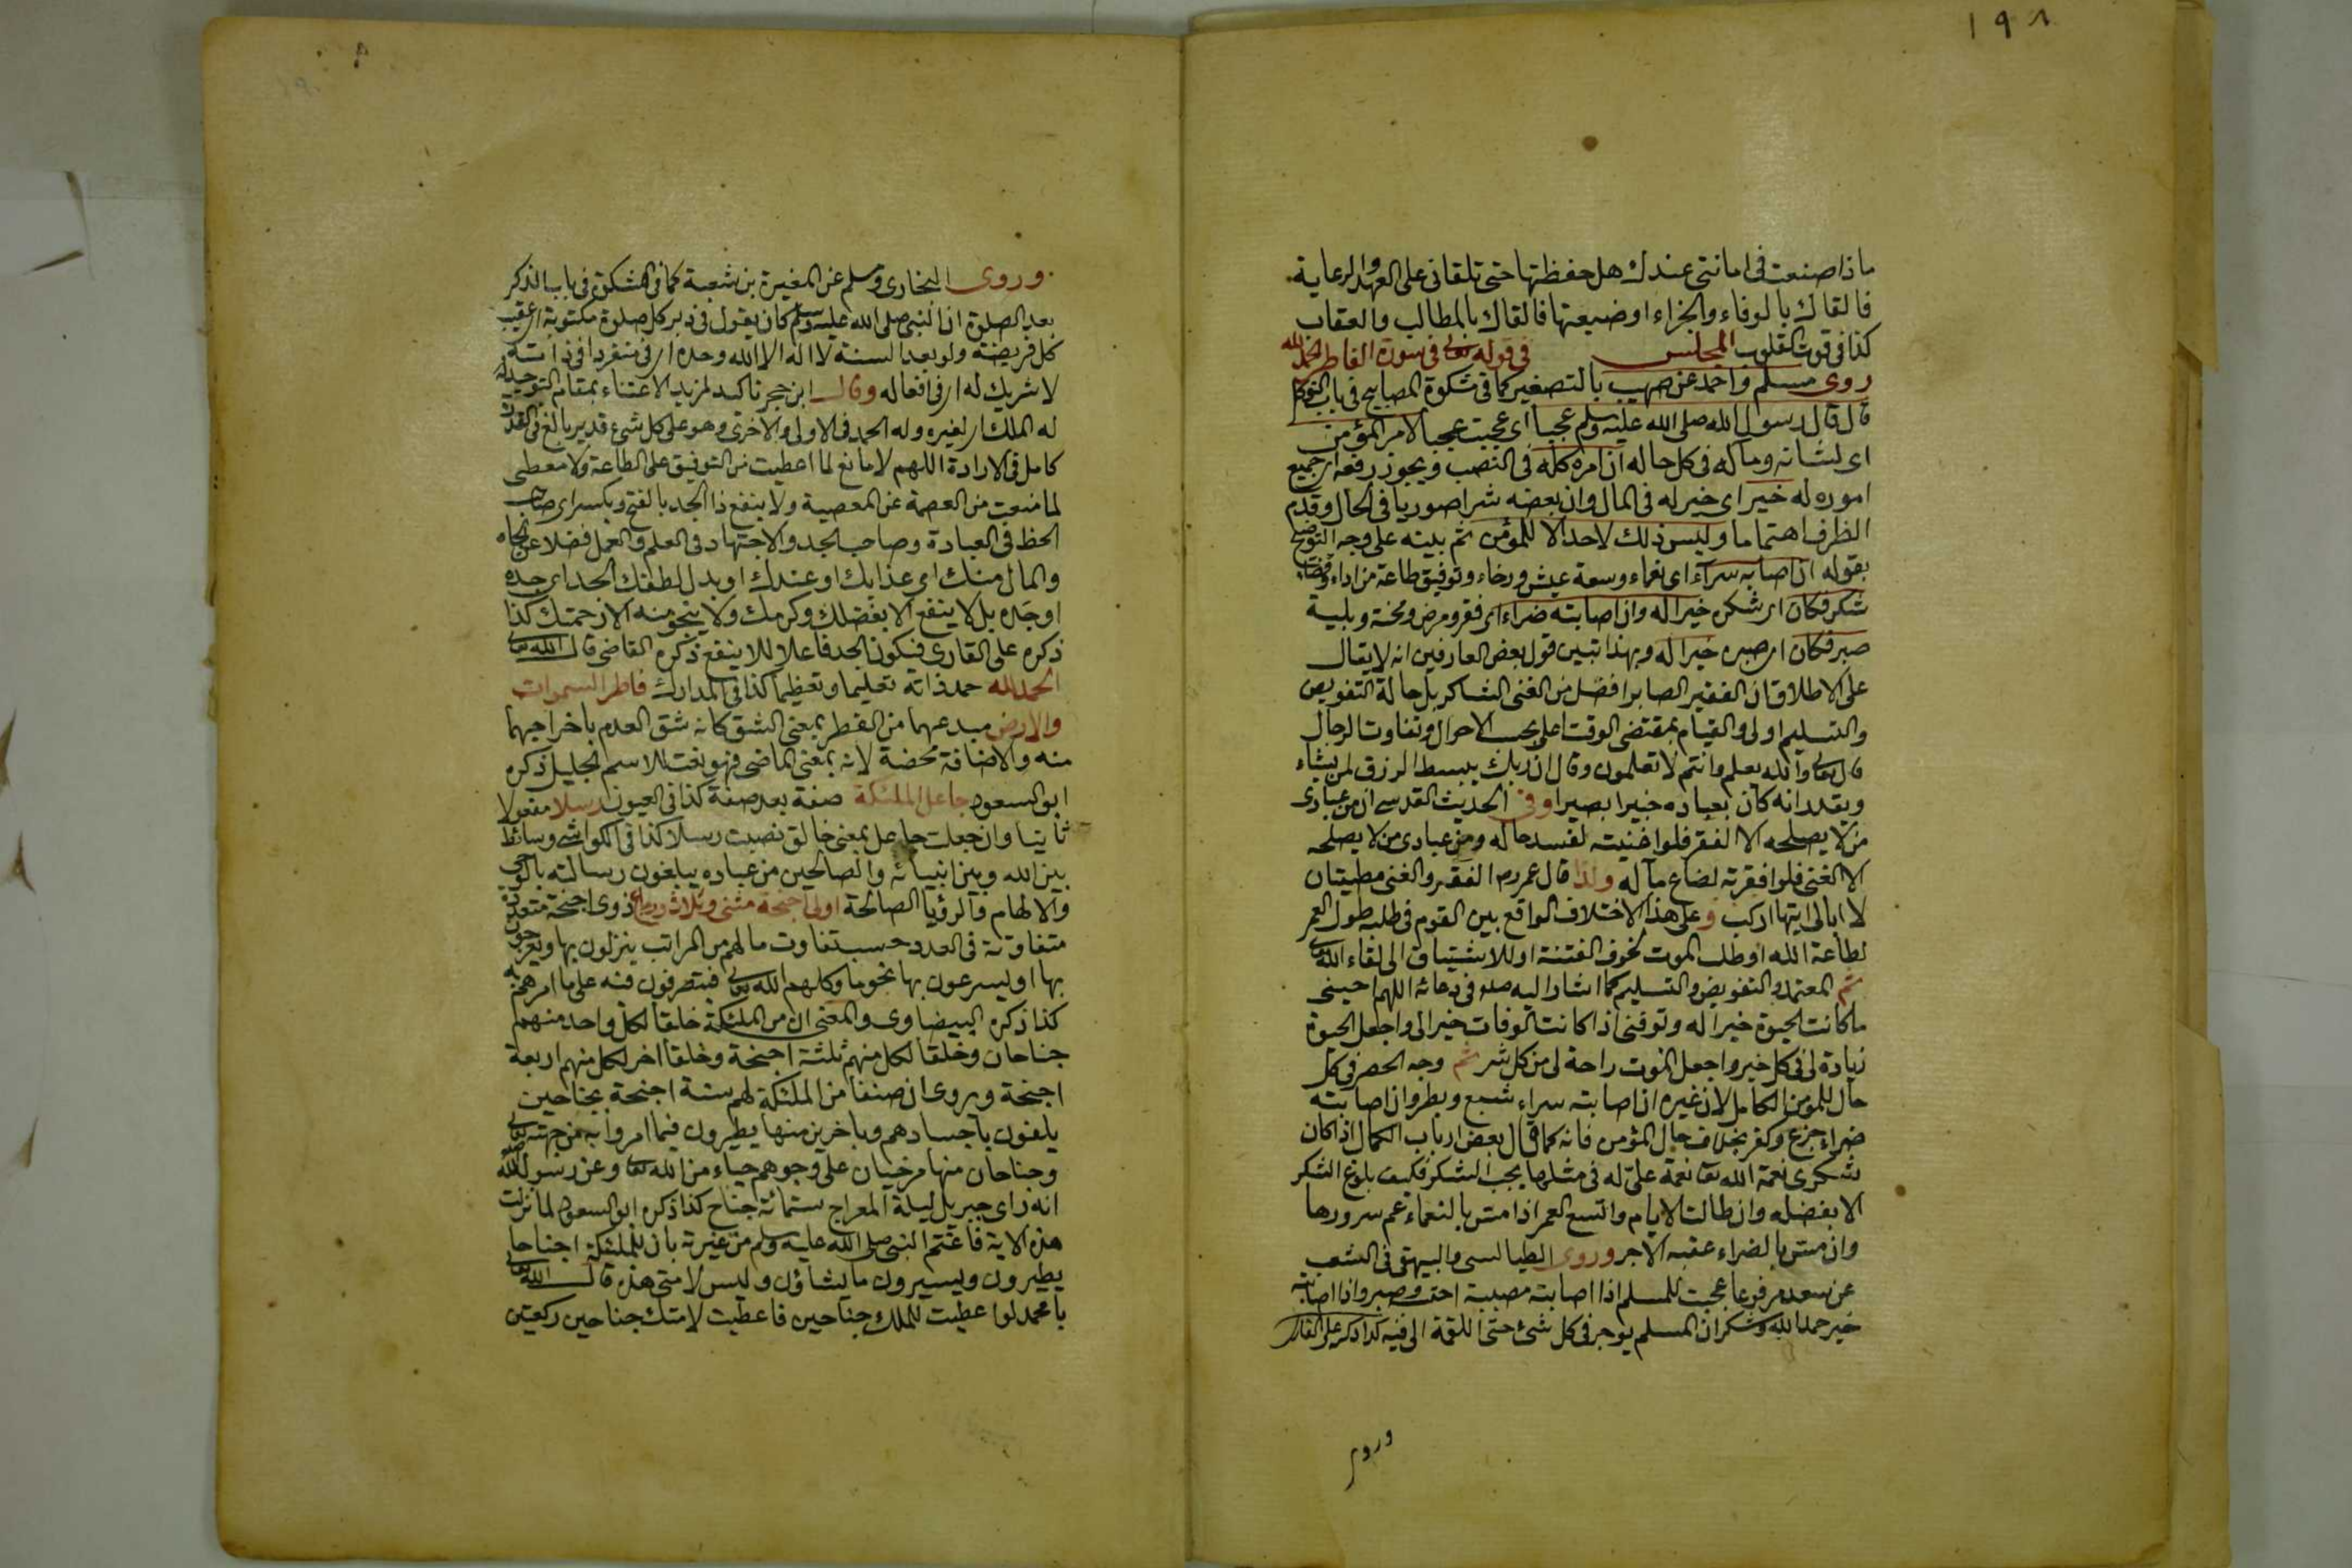 ١٩٨
ماذا صنعت فى امانتى عندك هل حفظتها حتى تلقانى على العهد والرعاية
فالقاك بالوفاء والجزاء او ضيعتها فالقاك بالمطالب والعقاب
كذا فى قوت القلوب المجلس فى قوله تعالى فى سورة الفاطر الحمد لله
روى مسلم واحمد عن صهيب بالتصغير كما فى مشكوة المصابيح فى باب التوكل
قال قال رسول الله صلى الله عليه وسلم عجبا اى عجبت عجبا لامر المؤمن
اى لشانه وماله فى كل حاله ان امره كله فى النصب ويجوز رفعه اى جميع
اموره له خير اى خير له فى المال وان بعضه شرا صوريا فى الحال وقدم
الظرف اهتماما وليس ذلك لاحد الا للمؤمن ثم بينه على وجه التوضيح
بقوله ان اصابه سرآء اى نعماء وسعة عيش ورخاء وتوفيق طاعة من اداء وقضاء
شكر فكان اى شكره خيرا له وان اصابته ضراء اى فقر ومرض ومحنة وبلية
صبر فكان اى صبره خيرا له وبهذا تبين قول بعض العارفين انه لا يقال
على الاطلاق ان الفقير الصابر افضل من الغنى الشاكر بل حالة التفويض
والتسليم اولى والقيام بمقتضى الوقت اعلى بحسب الاحوال وتفاوت الرجال
قال تعالى والله يعلم وانتم لا تعلمون وقال ان ربك يبسط الرزق لمن يشاء
ويقدر انه كان بعباده خبيرا بصيرا وفى الحديث القدسى ان من عبادى
من لا يصلحه الا الفقر فلو اغنيته لفسد حاله ومن عبادى من لا يصلحه
الا الغنى فلو افقرته لضاع مآله ولذا قال عمر رم الفقر والغنى مطيتان
لا ابالى ايتها اركب وعلى هذا الاختلاف الواقع بين القوم فى طلب طول العمر
لطاعة الله او طلب الموت لخوف الفتنة او للاشتياق الى لقاء الله تعالى
ثم المعتمد والتفويض والتسليم كما اشار اليه صلم فى دعائه اللهم احينى
ما كانت الحيوة خيرا له وتوفنى اذا كانت الوفات خيرا لى واجعل الحيوة
زيادة لى فى كل خير واجعل الموت راحة لى من كل شر ثم وجه الحصر فى كل
حال للمؤمن الكامل لان غيره ان اصابته سراء شبع وبطر وان اصابته
ضراء جزع وكفر بخلاف حال المؤمن فانه كما قال بعض ارباب الكمال اذا كان
شكرى نعمة الله تعا نعمة علىّ له فى مثلها يجب الشكر فكيف بلوغ الشكر
الا بفضله وان طالت الايام واتسع العمر اذا مس بالنعماء عم سرورها
وان مس بالضراء عقبه الاجر وروى الطيالسى والبيهقى فى الشعب
عن سعد مرفوعا عجبت للمسلم اذا اصابته مصيبة احتسب وصبر واذا اصابته
خير حمد الله وشكر ان المسلم يوجر فى كل شئ حتى اللقمة الى فيه كذا ذكر على القارى
وروى
وروى البخارى ومسلم عن المغيرة بن شعبة كما فى المشكوة فى باب الذكر
بعد الصلوة ان النبى صلى الله عليه وسلم كان يقول فى دبر كل صلوة مكتوبة اى عقيب
كل فريضة ولو بعد السنة لا اله الا الله وحده اى منفردا فى ذاته
لا شريك له اى فى افعاله وقال ابن حجر تاكيد لمزيد الاعتناء بمقام التوحيد له
له الملك اى لغيره وله الحمد فى الاولى والاخرى وهو على كل شئ قدير بالغ فى القدرة
كامل فى الارادة اللهم لا مانع لما اعطيت من التوفيق على الطاعة ولا معطى
لما منعت من العصمة عن المعصية ولا ينفع ذا الجد بالفتح وبكسر اى صاحب
الحظ فى العبادة وصاحب الجد والاجتهاد فى العلم والعمل فضلا عن الجاه
والمال منك اى عذابك او عندك او بدل لطفك الجد اى جده
او جَده بل لا ينفع الا بفضلك وكرمك ولا ينجو منه الا رحمتك كذا
ذكره على القارى فيكون الجد فاعلا للا ينفع ذكره القاضى قال الله تعالى
الحمد لله حمد ذاته تعليما وتعظيما كذا فى المدارك فاطر السموات
والارض مبدعهما من الفطر بمعنى الشق كانه شق العدم باخراجهما
منه والاضافة محضة لانه بمعنى الماضى فهو نعت للاسم الجليل ذكره
ابو السعود جاعل الملئكة صفة بعد صفة كذا فى العيون رسلا مفعولا
ثانيا وان جعلت جاعل بمعنى خالق نصبت رسلا كذا فى الكواشى وسائط
بين الله وبين انبيائه والصالحين من عباده يبلغون رسالته بالوحى
والالهام والرؤيا الصالحة اولى اجنحة مثنى وثلاث ورباع ذوى اجنحة متعددة
متفاوتة فى العدد حسب تفاوت مالهم من المراتب ينزلون بها ويعرجون
بها او يسرعون بها نحو ما وكلهم الله تعالى فيتصرفون فيه على ما امرهم به
كذا ذكره البيضاوى والمعنى ان من الملئكة خلقا لكل واحد منهم
جناحان وخلقا لكل منهم ثلثة اجنحة وخلقا اخر لكل منهم اربعة
اجنحة وروى ان صنفا من الملئكة لهم ستة اجنحة بجناحين
يلفون باجسادهم وباخرين منها يطيرون فيما امروا به من جهته تعالى
وجناحان منها مرخيان على وجوههم حياء من الله تعا وعن رسول الله
انه راى جبريل ليلة المعراج ستمائة جناح كذا ذكره ابو السعود لما نزلت
هذه الاية فاغتم النبى صلى الله عليه وسلم من غيرته بان للملئكة اجناحا
يطيرون ويسيرون ما يشاؤن وليس لامتى هذه قال الله تعالى
يا محمد لو اعطيت للملك جناحين فاعطيت لامتك جناحين ركعتين